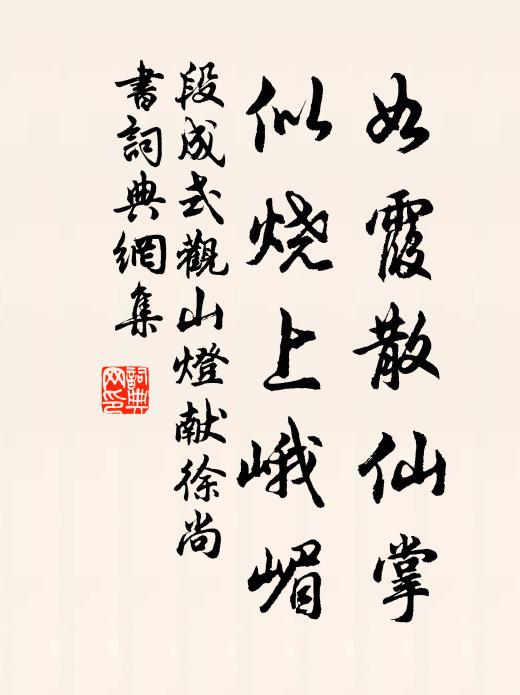 如霞散仙掌
似烧上峨嵋
段成式觀山燈献徐尚
書詞典網集
詞典
网印